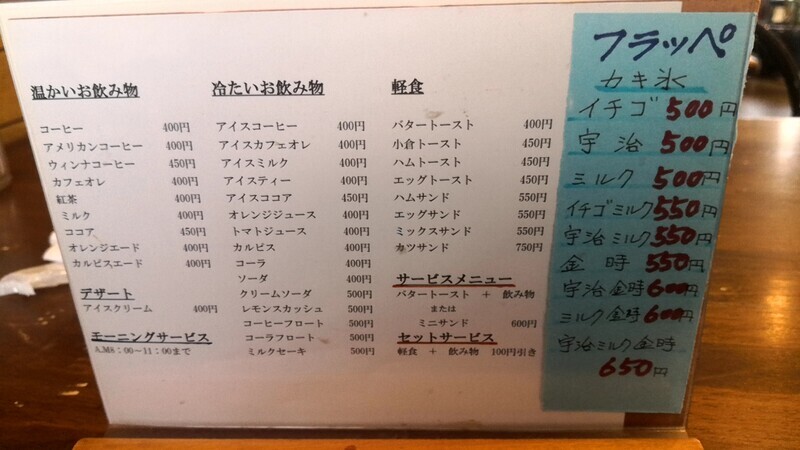 温かいお飲み物
コーヒー 400円
アメリカンコーヒー 400円
ウィンナコーヒー 450円
カフェオレ 400円
紅茶 400円
ミルク 400円
ココア 450円
オレンジエード 400円
カルピスエード 400円
デザート
アイスクリーム 400円
モーニングサービス
A.M8:00～11:00まで
冷たいお飲み物
アイスコーヒー 400円
アイスカフェオレ 400円
アイスミルク 400円
アイスティー 400円
アイスココア 450円
オレンジジュース 400円
トマトジュース 400円
カルピス 400円
コーラ 400円
ソーダ 400円
クリームソーダ 500円
レモンスカッシュ 500円
コーヒーフロート 500円
コーラフロート 500円
ミルクセーキ 500円
軽食
バタートースト 400円
小倉トースト 450円
ハムトースト 450円
エッグトースト 450円
ハムサンド 550円
エッグサンド 550円
ミックスサンド 550円
カツサンド 750円
サービスメニュー
バタートースト + 飲み物
または
ミニサンド 600円
セットサービス
軽食 + 飲み物 100円引き
フラッペ
カキ氷
イチゴ 500円
宇治 500円
ミルク 500円
イチゴミルク 550円
宇治ミルク 550円
金時 550円
宇治金時 600円
ミルク金時 600円
宇治ミルク金時
650円